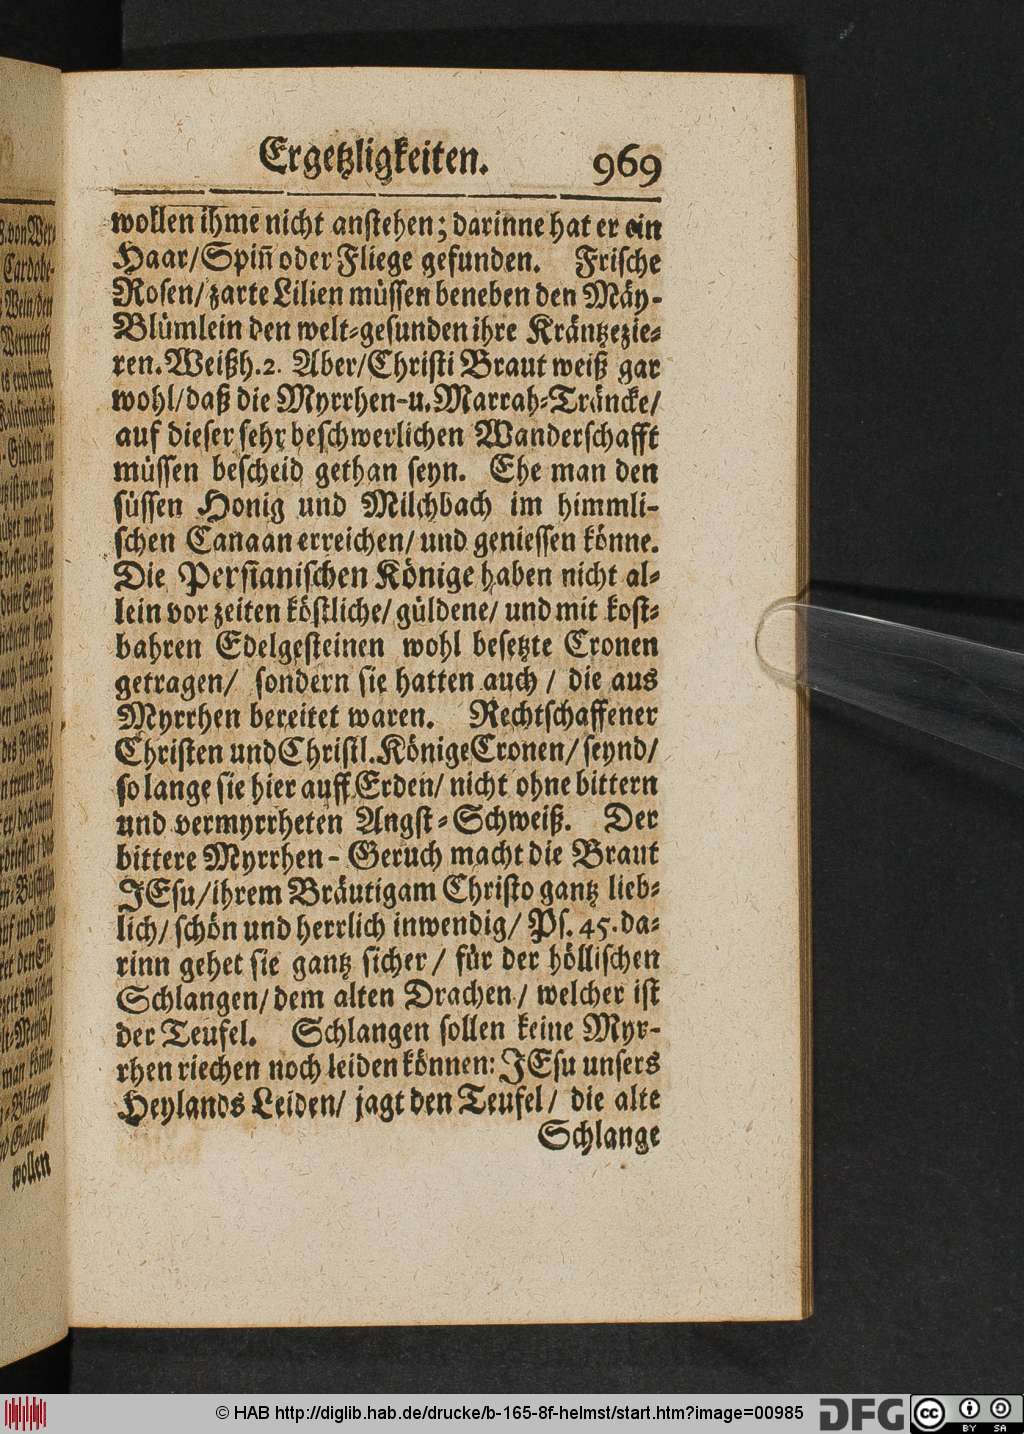 Ergetzligkeiten. 969
wollen ihme nicht anstehen; darinne hat er ein
Haar/Spiñ oder Fliege gefunden. Frische
Rosen/ zarte Lilien müssen beneben den Mäy-
Blümlein den welt-gesunden ihre Kräntzezie-
ren. Weißh. 2. Aber/Christi Braut weiß gar
wohl/daß die Myrrhen-u. Marrah-Träncke/
auf dieser sehr beschwerlichen Wanderschafft
müssen bescheid gethan seyn. Ehe man den
süssen Honig und Milchbach im himmli-
schen Canaan erreichen/ und geniessen könne.
Die Persianischen Könige haben nicht al-
lein vor zeiten köstliche/ güldene/ und mit kost-
bahren Edelgesteinen wohl besetzte Cronen
getragen/ sondern sie hatten auch / die aus
Myrrhen bereitet waren. Rechtschaffener
Christen und Christl. Könige Cronen/ seynd/
so lange sie hier auff Erden/ nicht ohne bittern
und vermyrrheten Angst-Schweiß. Der
bittere Myrrhen-Geruch macht die Braut
JEsu/ihrem Bräutigam Christo gantz lieb-
lich/ schön und herrlich inwendig/ Ps. 45. da-
rinn gehet sie gantz sicher / für der höllischen
Schlangen/ dem alten Drachen/ welcher ist
der Teufel. Schlangen sollen keine Myr-
rhen riechen noch leiden können: JEsu unsers
Heylands Leiden/ jagt den Teufel/ die alte
Schlange
wollen
© HAB http://diglib.hab.de/drucke/b-165-8f-helmst/start.htm?image=00985
DFG
cc BY SA